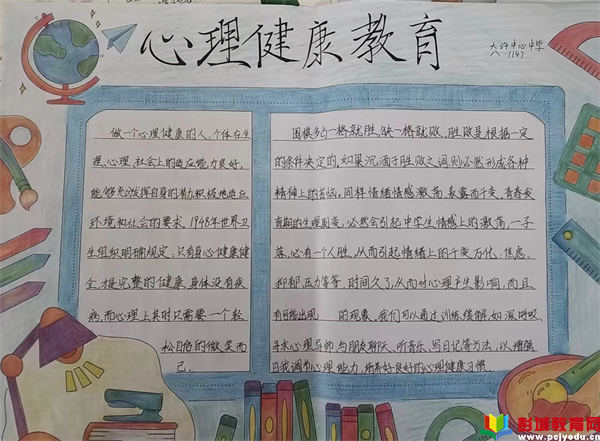 心理健康教育
大许中心中学
八（14）
做一个心理健康的人，个体在生
理、心理、社会上的适应能力良好，
能够充分发挥自身的潜力积极地适应
环境和社会的要求，1948年世界卫
生组织明确规定：只有身心健康健
全，根完整的健康，身体没有疾
病，而心理上其时只需要一个轻
松自信的微笑而
已。
围棋多占一格就胜，缺一格就败，胜败是根据一定
的条件决定的，如果沉湎于胜败之词则必然形成各种
精神上的苦恼。同样情绪情感激荡，表露而千变，青春发
育期的生理剧变，必然会引起中学生情感上的激荡，一子
落，必有一个人胜，从而引起情绪上的千变万化：焦虑、
抑郁、压力等等，时间久了，从而对心理产生影响，而且
有可能出现 的现象，我们可以通过训练缓解，如深呼吸、
寻求心理导师、与朋友聊天、听音乐、写日记等方法，以增强
自我调节心理能力，培养好良好的心理健康习惯
彭城教育网
www.pcjyedu.cn